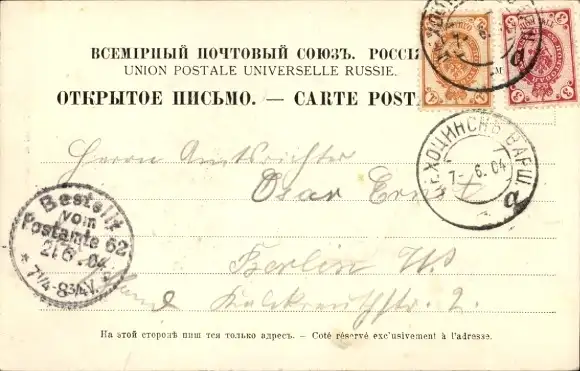 ВСЕМІРНЫЙ ПОЧТОВЫЙ СОЮЗЪ. РОССІ
UNION POSTALE UNIVERSELLE RUSSIE.
ОТКРЫТОЕ ПИСЬМО. — CARTE POST
Herrn Amtsrichter
Oscar Ernst
ЕХОЦИНСКЪ ВАРШ
7
7. 6. 04
a
Bestellt
vom
Postamte 62
21.6.04
7¼-8¾V.
Berlin W.
Kalckreuthstr. 2.
На этой сторонѣ пиш тся только адресъ. — Coté réservé exclusivement à l'adresse.